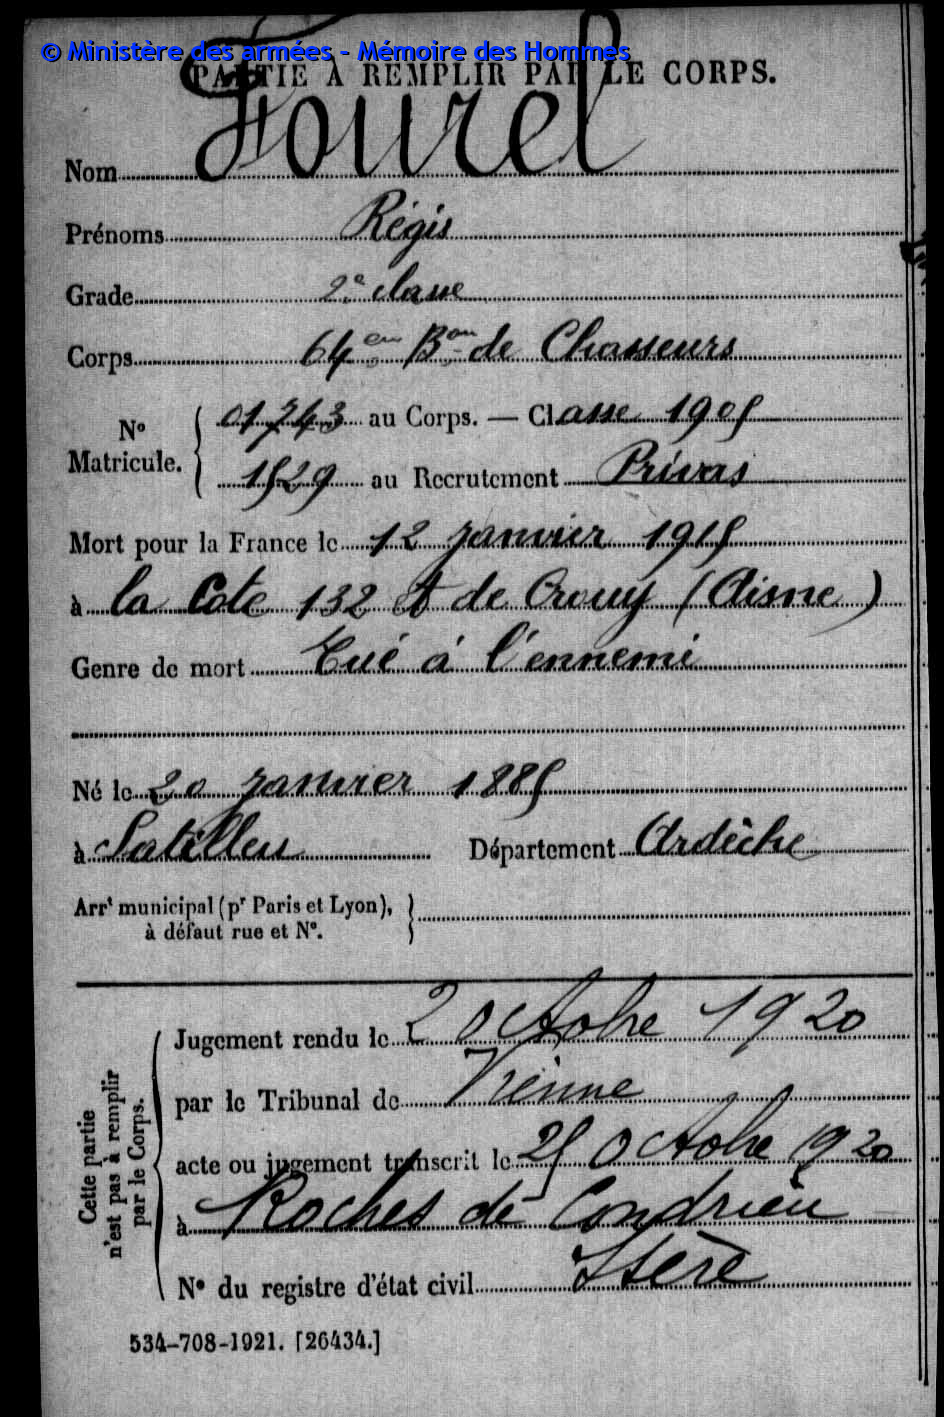 © Ministère des armées - Mémoire des Hommes
PARTIE À REMPLIR PAR LE CORPS.
Nom Fourel
Prénoms Régis
Grade 2e classe
Corps 64em Bon de Chasseurs
No Matricule. { 01743 au Corps. — Classe 1905
1529 au Recrutement Privas
Mort pour la France le 12 janvier 1915
à la Cote 132 de Crouy (Aisne)
Genre de mort Tué à l'ennemi
Né le 20 janvier 1885
à Satillieu Département Ardèche
Arrt municipal (pr Paris et Lyon), }
à défaut rue et No.
Cette partie
n'est pas à remplir
par le Corps.
Jugement rendu le 2 octobre 1920
par le Tribunal de Vienne
acte ou jugement transcrit le 25 octobre 1920
à Roches de Condrieu
Isère
No du registre d'état civil
534-708-1921. [26434.]